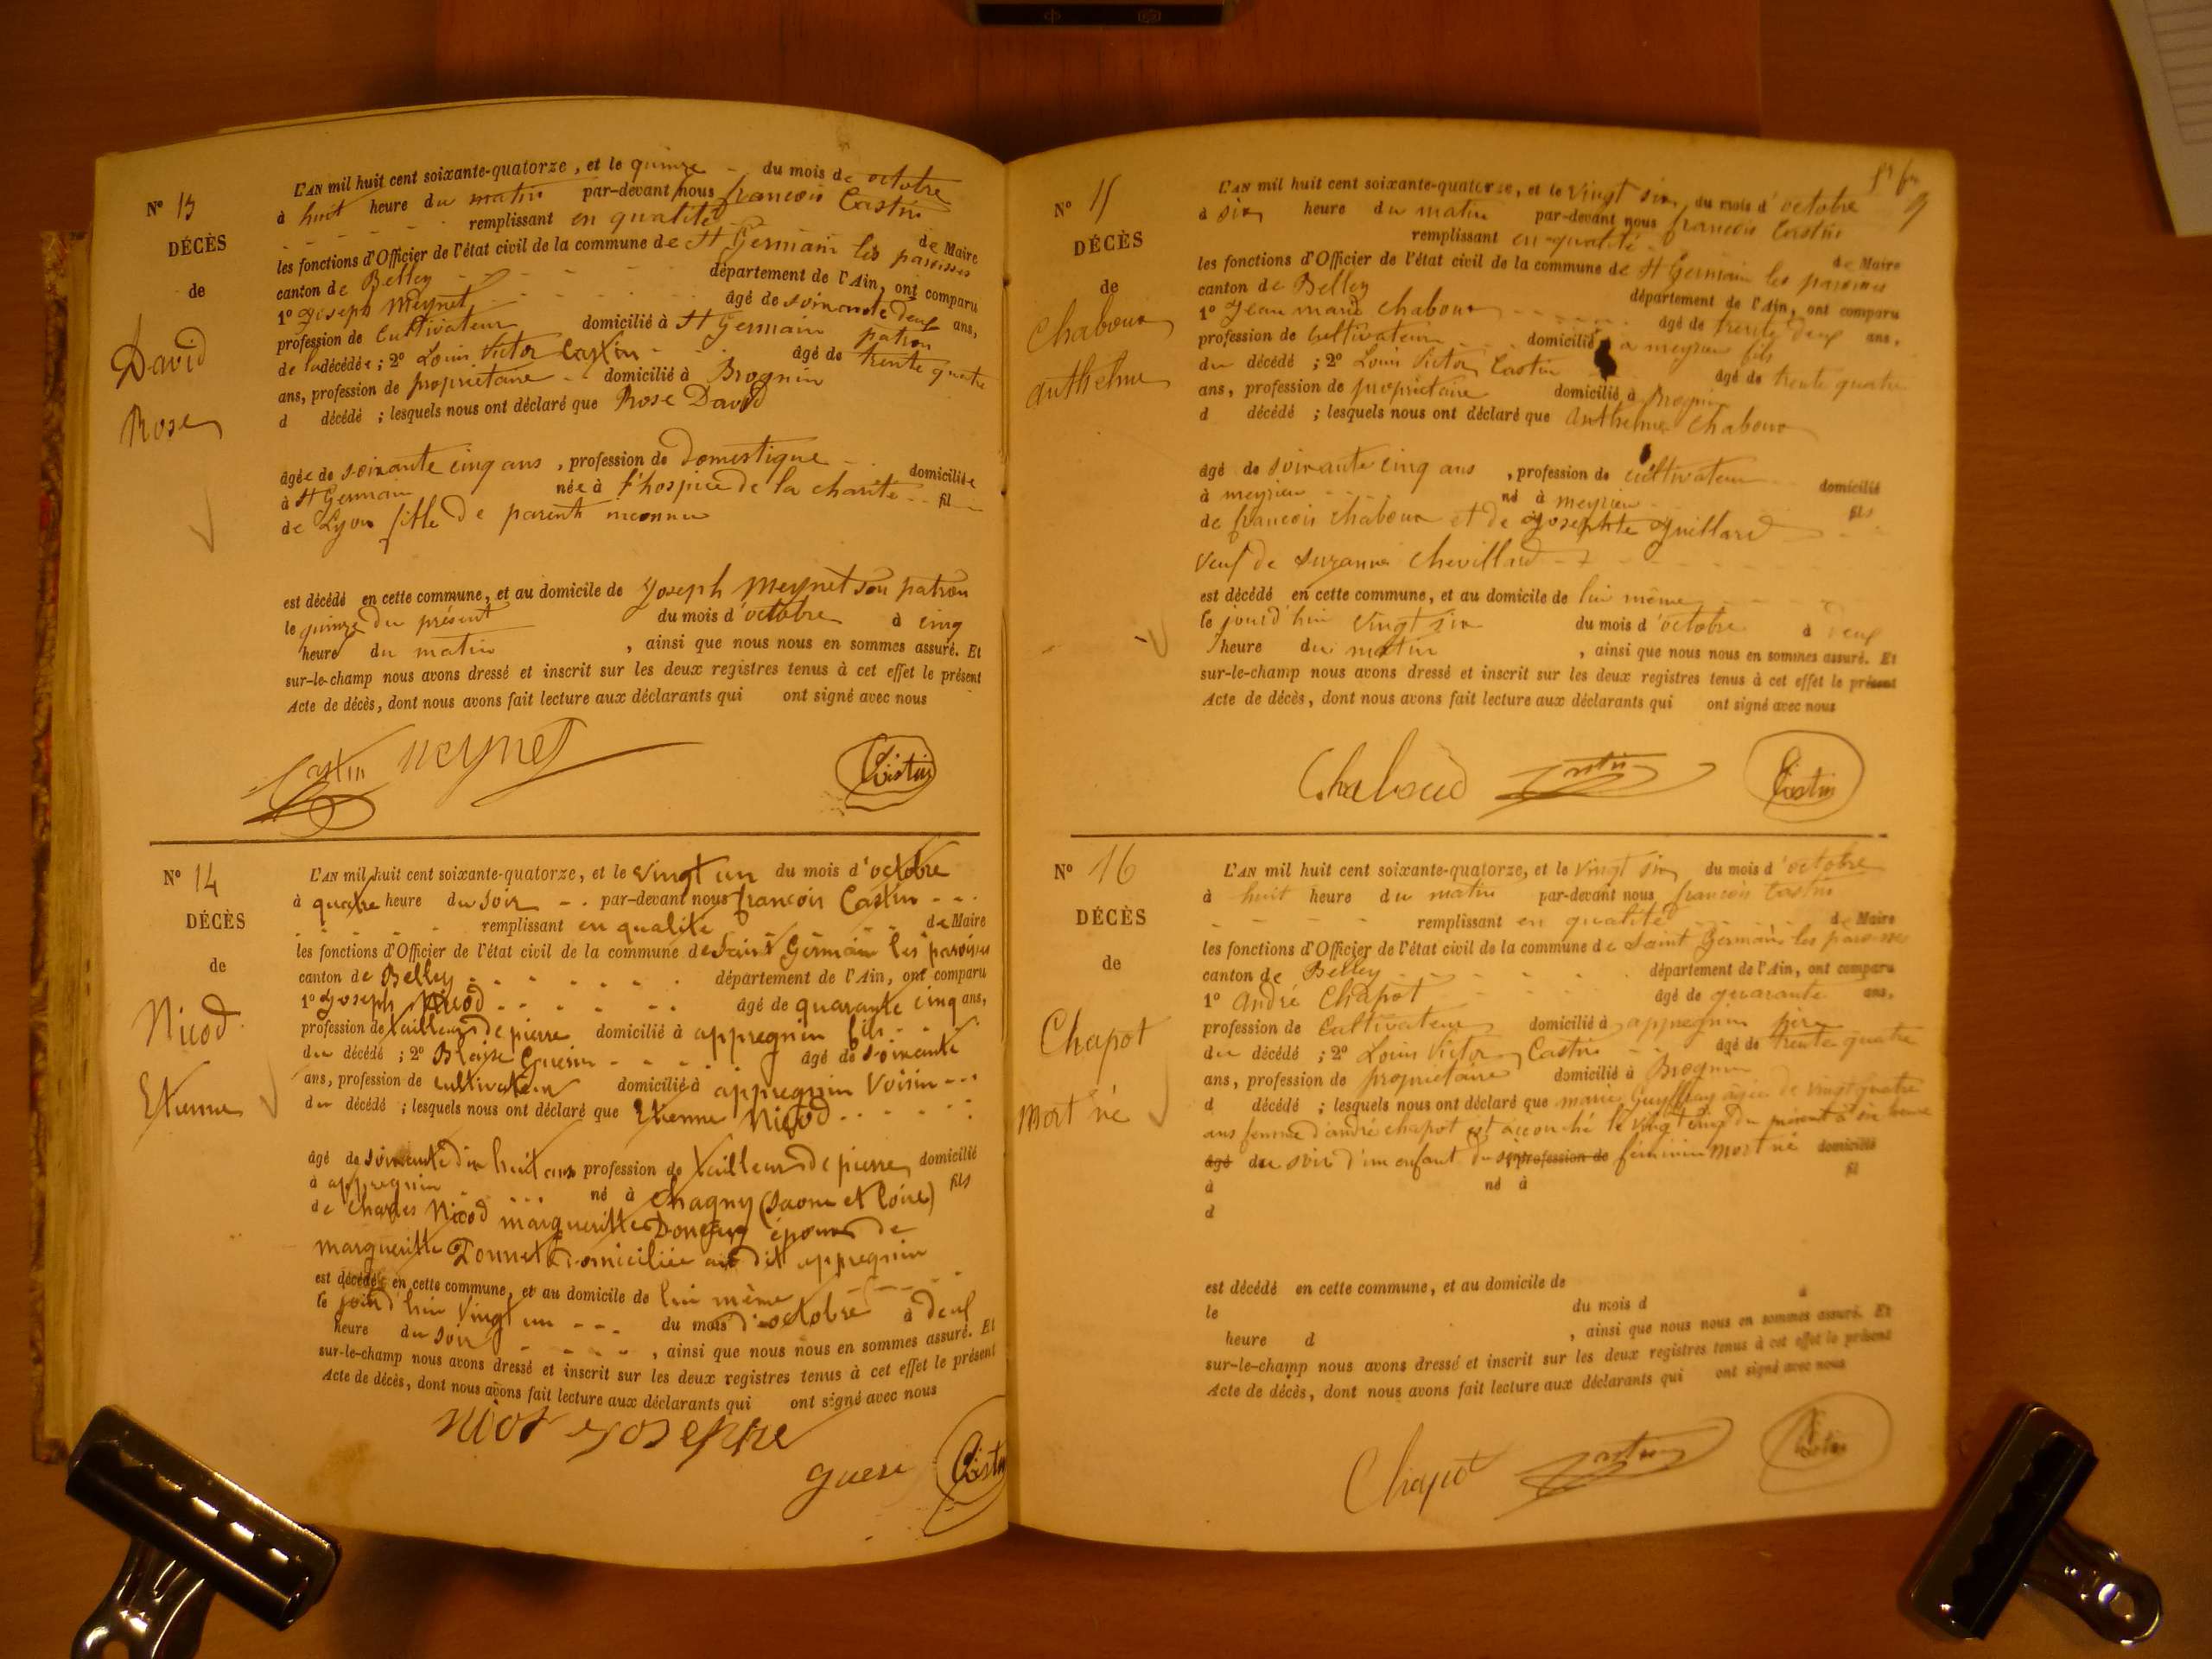 N° 13
DÉCÈS
de
David
Rose
L'AN mil huit cent soixante-quatorze, et le quinze du mois de octobre
à huit heure du matin par-devant nous francois Castin
remplissant en qualité de Maire
les fonctions d'Officier de l'état civil de la commune de St Germain les paroisses
canton de Belley département de l'Ain, ont comparu
1° Joseph Meynet âgé de soixante deux ans,
profession de Cultivateur domicilié à St Germain patron
de la décédée ; 2° Louis Victor Castin âgé de trente quatre
ans, profession de propriétaire domicilié à Brognin
d décédé ; lesquels nous ont déclaré que Rose David
âgée de soixante cinq ans, profession de Domestique domiciliée
à St Germain née à l'hospice de la charité fil
de Lyon fille de parents inconnu
est décédé en cette commune, et au domicile de Joseph Meynet son patron
le quinze du présent du mois d'octobre à cinq
heure du matin, ainsi que nous nous en sommes assuré. Et
sur-le-champ nous avons dressé et inscrit sur les deux registres tenus à cet effet le présent
Acte de décès, dont nous avons fait lecture aux déclarants qui ont signé avec nous
Castin Meynet Castin
N° 14
DÉCÈS
de
Nicod
Etienne
L'AN mil huit cent soixante-quatorze, et le vingt un du mois d'octobre
à quatre heure du soir par-devant nous francois Castin
remplissant en qualité de Maire
les fonctions d'Officier de l'état civil de la commune de Saint Germain les paroisses
canton de Belley département de l'Ain, ont comparu
1° Joseph Nicod âgé de quarante cinq ans,
profession de tailleur de pierre domicilié à appregnin fils
du décédé ; 2° Blaise Guerin âgé de soixante
ans, profession de cultivateur domicilié à appregnin Voisin
du décédé ; lesquels nous ont déclaré que Etienne Nicod
âgé de soixante dix huit ans profession de tailleur de pierre domicilié
à appregnin né à Chagny (Saone et Loire) fils
de Charles Nicod margueritte époux de
margueritte Tonnet domiciliée au dit appregnin
est décédé en cette commune, et au domicile de lui même
le jourd'hui vingt un du mois d'octobre à deux
heure du soir, ainsi que nous nous en sommes assuré. Et
sur-le-champ nous avons dressé et inscrit sur les deux registres tenus à cet effet le présent
Acte de décès, dont nous avons fait lecture aux déclarants qui ont signé avec nous
nicot joseppe
guere Castin
N° 15
DÉCÈS
de
Chaboux
Anthelme
L'AN mil huit cent soixante-quatorze, et le vingt six du mois d'octobre
à six heure du matin par-devant nous francois Castin
remplissant en qualité de Maire
les fonctions d'Officier de l'état civil de la commune de St Germain les paroisses
canton de Belley département de l'Ain, ont comparu
1° Jean marie chaboux âgé de trente deux ans,
profession de cultivateur domicilié à meyrieu fils
du décédé ; 2° Louis Victor Castin âgé de trente quatre
ans, profession de propriétaire domicilié à Brognin
d décédé ; lesquels nous ont déclaré que Anthelme Chaboux
âgé de soixante cinq ans, profession de cultivateur domicilié
à meyrieu né à meyrieu fils
de francois chaboux et de Josephte Guillard
veuf de Suzanne Chevillard
est décédé en cette commune, et au domicile de lui même
le jourd'hui vingt six du mois d'octobre à deux
heure du matin, ainsi que nous nous en sommes assuré. Et
sur-le-champ nous avons dressé et inscrit sur les deux registres tenus à cet effet le présent
Acte de décès, dont nous avons fait lecture aux déclarants qui ont signé avec nous
Chaboud Castin Castin
N° 16
DÉCÈS
de
Chapot
Mort né
L'AN mil huit cent soixante-quatorze, et le vingt six du mois d'octobre
à huit heure du matin par-devant nous francois Castin
remplissant en qualité de Maire
les fonctions d'Officier de l'état civil de la commune de Saint Germain les paroisses
canton de Belley département de l'Ain, ont comparu
1° André Chapot âgé de quarante ans,
profession de Cultivateur domicilié à appregnin père
du décédé ; 2° Louis Victor Castin âgé de trente quatre
ans, profession de propriétaire domicilié à Brognin
d décédé ; lesquels nous ont déclaré que marie Guyffray agée de vingt quatre
ans femme d'andré chapot est accouché le vingt cinq du présent à onze heure
âgé du soir d'un enfant du sexe profession de féminin mort né domicilié
à né à fil
d
est décédé en cette commune, et au domicile de
le du mois d à
heure d, ainsi que nous nous en sommes assuré. Et
sur-le-champ nous avons dressé et inscrit sur les deux registres tenus à cet effet le présent
Acte de décès, dont nous avons fait lecture aux déclarants qui ont signé avec nous
Chapot Castin Castin